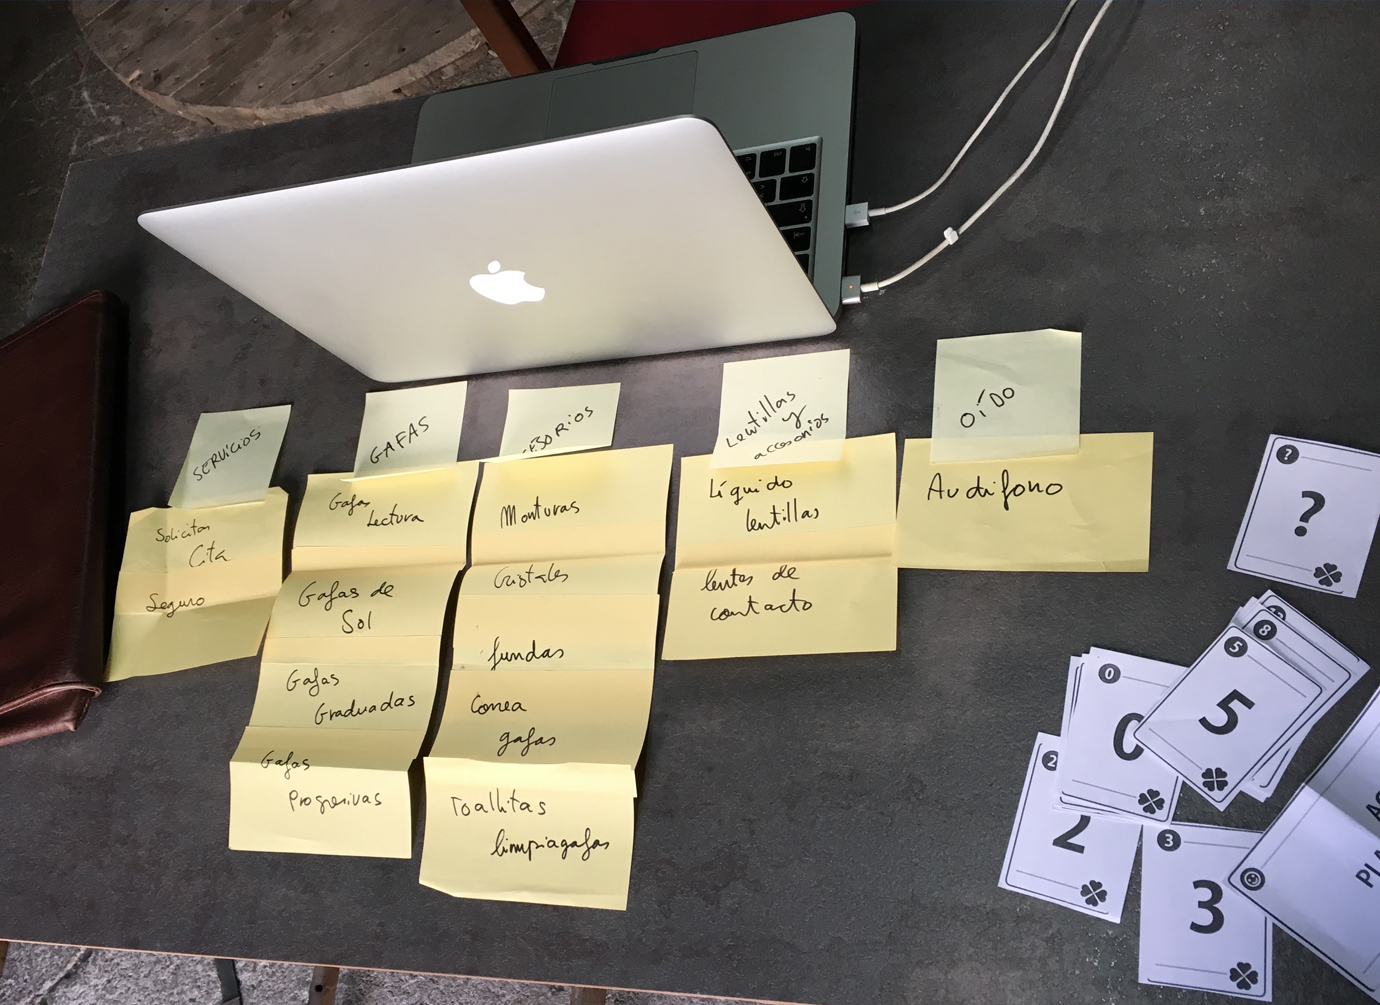 SERVICIOS
Solicitar
Cita
Seguro
GAFAS
Gafas
Lectura
Gafas de
Sol
Gafas
Graduadas
Gafas
Progresivas
CESORIOS
Monturas
Cristales
fundas
Correa
gafas
Toallitas
limpiagafas
Lentillas
y
accesorios
Líquido
lentillas
lentes de
contacto
OÍDO
Audífono
?
?
8
5
5
0
0
2
2
3
3